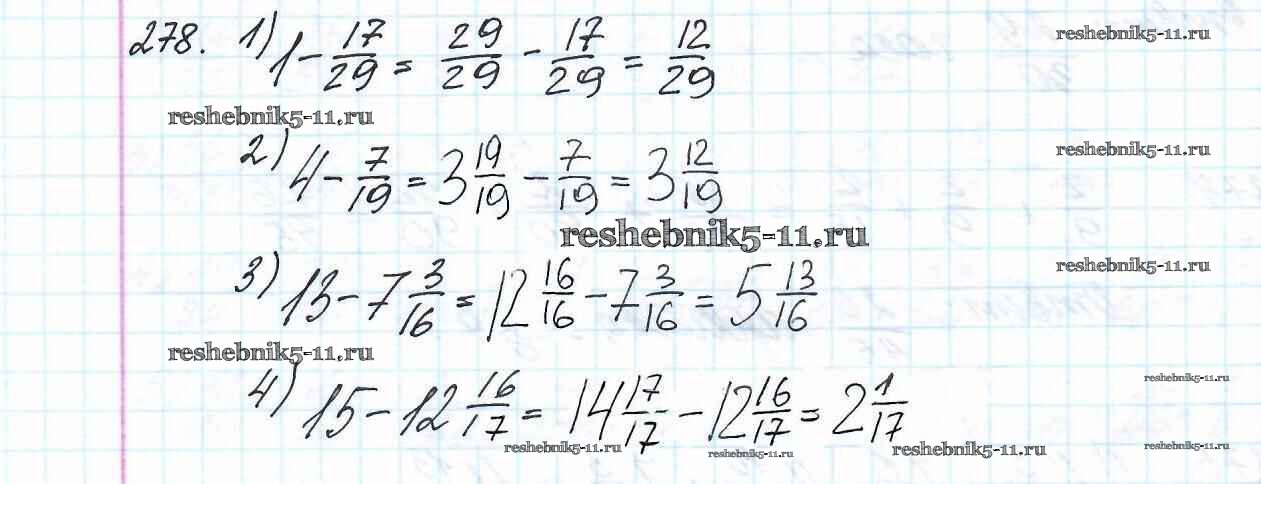 278. 1) 1 - 17/29 = 29/29 - 17/29 = 12/29
reshebnik5-11.ru
reshebnik5-11.ru
2) 4 - 7/19 = 3 19/19 - 7/19 = 3 12/19
reshebnik5-11.ru
reshebnik5-11.ru
3) 13 - 7 3/16 = 12 16/16 - 7 3/16 = 5 13/16
reshebnik5-11.ru
reshebnik5-11.ru
4) 15 - 12 16/17 = 14 17/17 - 12 16/17 = 2 1/17
reshebnik5-11.ru
reshebnik5-11.ru
reshebnik5-11.ru
reshebnik5-11.ru
reshebnik5-11.ru